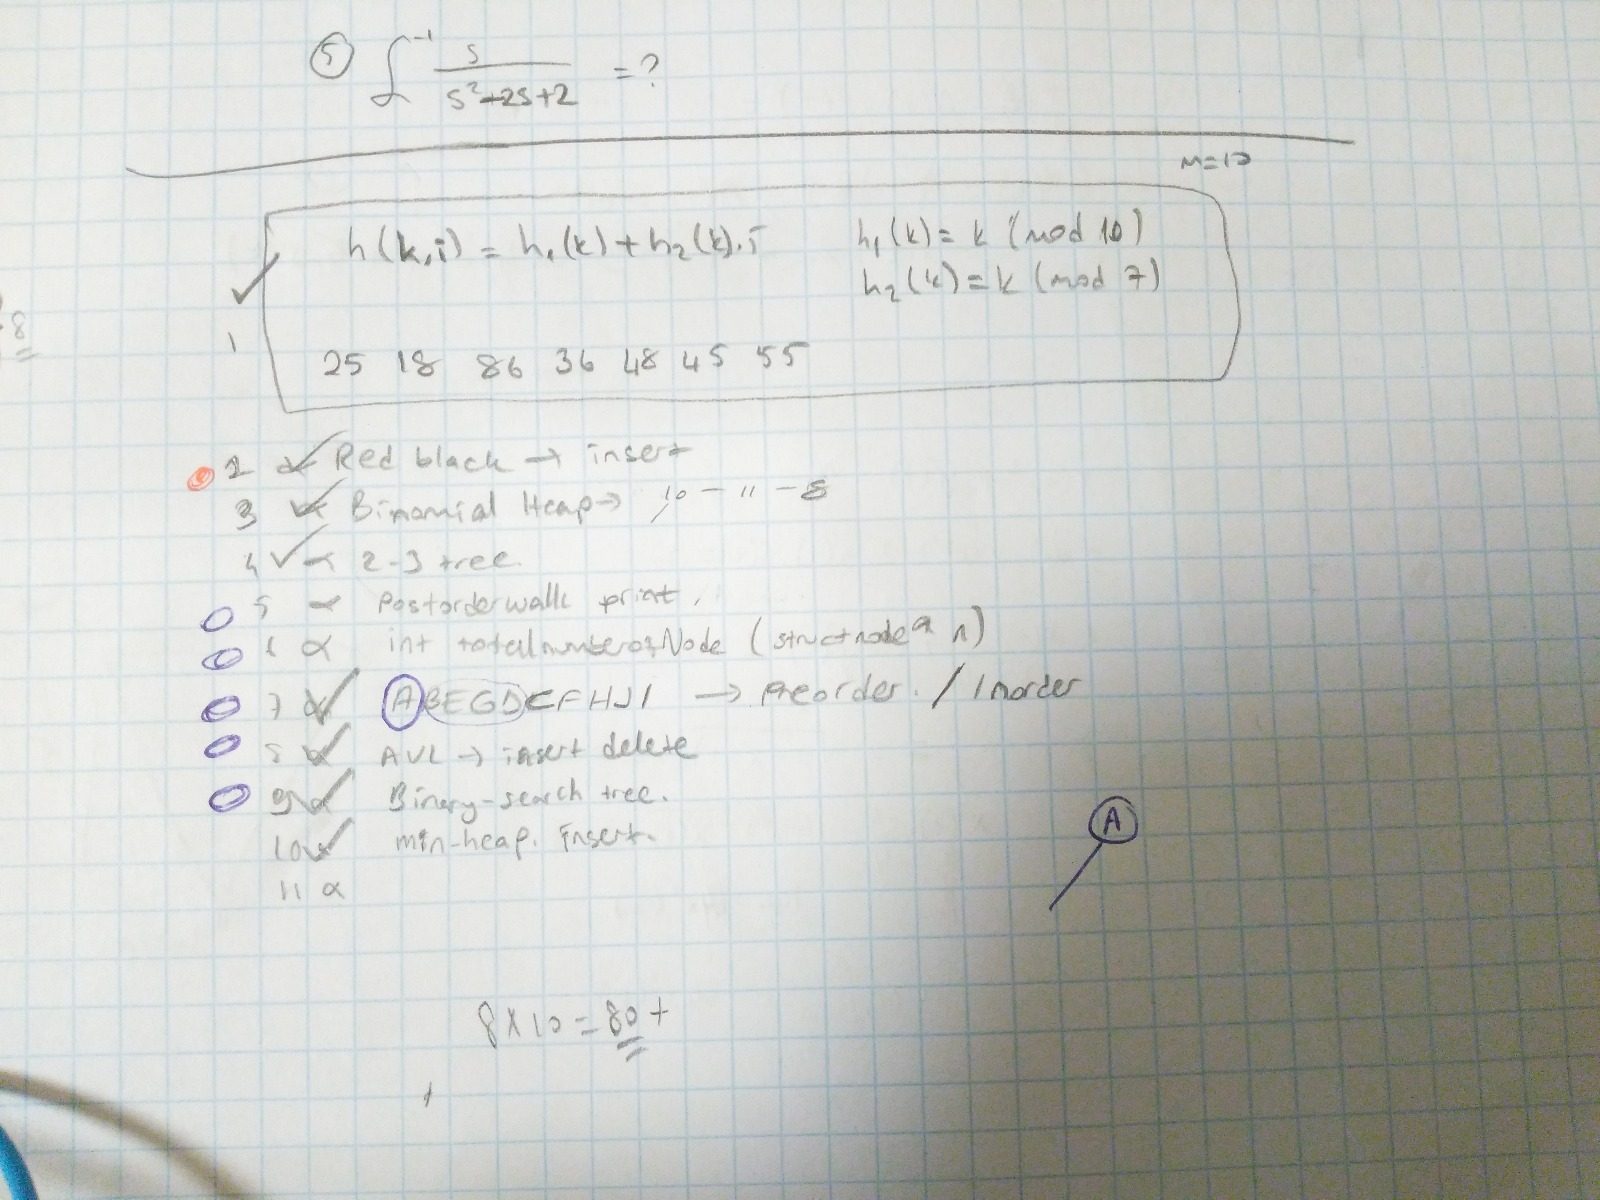 ⑤ ℒ⁻¹ s / s²-2s+2 = ?
m=10
h(k,i) = h₁(k) + h₂(k).i h₁(k) = k (mod 10)
h₂(k) = k (mod 7)
1
25 18 86 36 48 45 55
8
2 α Red black → insert
3 α Binomial Heap → 10 - 11 - 8
4 α 2-3 tree.
5 α Postorderwalk print,
6 α int totalnumberofNode (struct node * n)
7 α ABEGDCFHJI → Preorder. / Inorder
8 α AVL → insert delete
9 α Binary-search tree.
10 α min-heap. insert.
A
11 α
8x10=80+